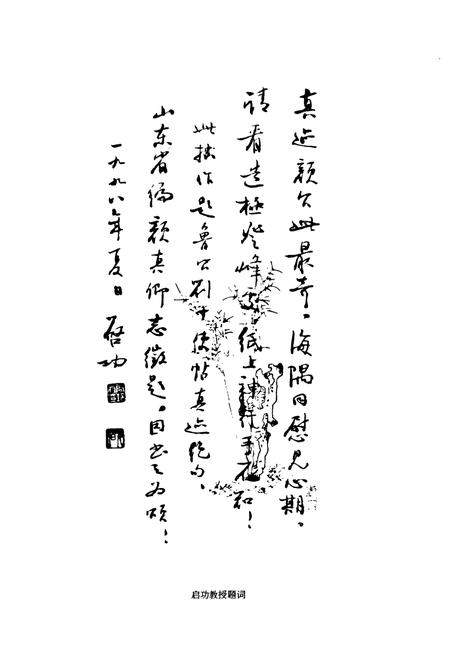 真迹颜公此最奇。海隅同慰见心期。
请看造极登峰处、纸上神行手不知！
此拙作题鲁公刘中使帖真迹绝句、
山东省编颜真卿志徵题。因书之为颂！
一九九八年夏日 启功
启功教授题词